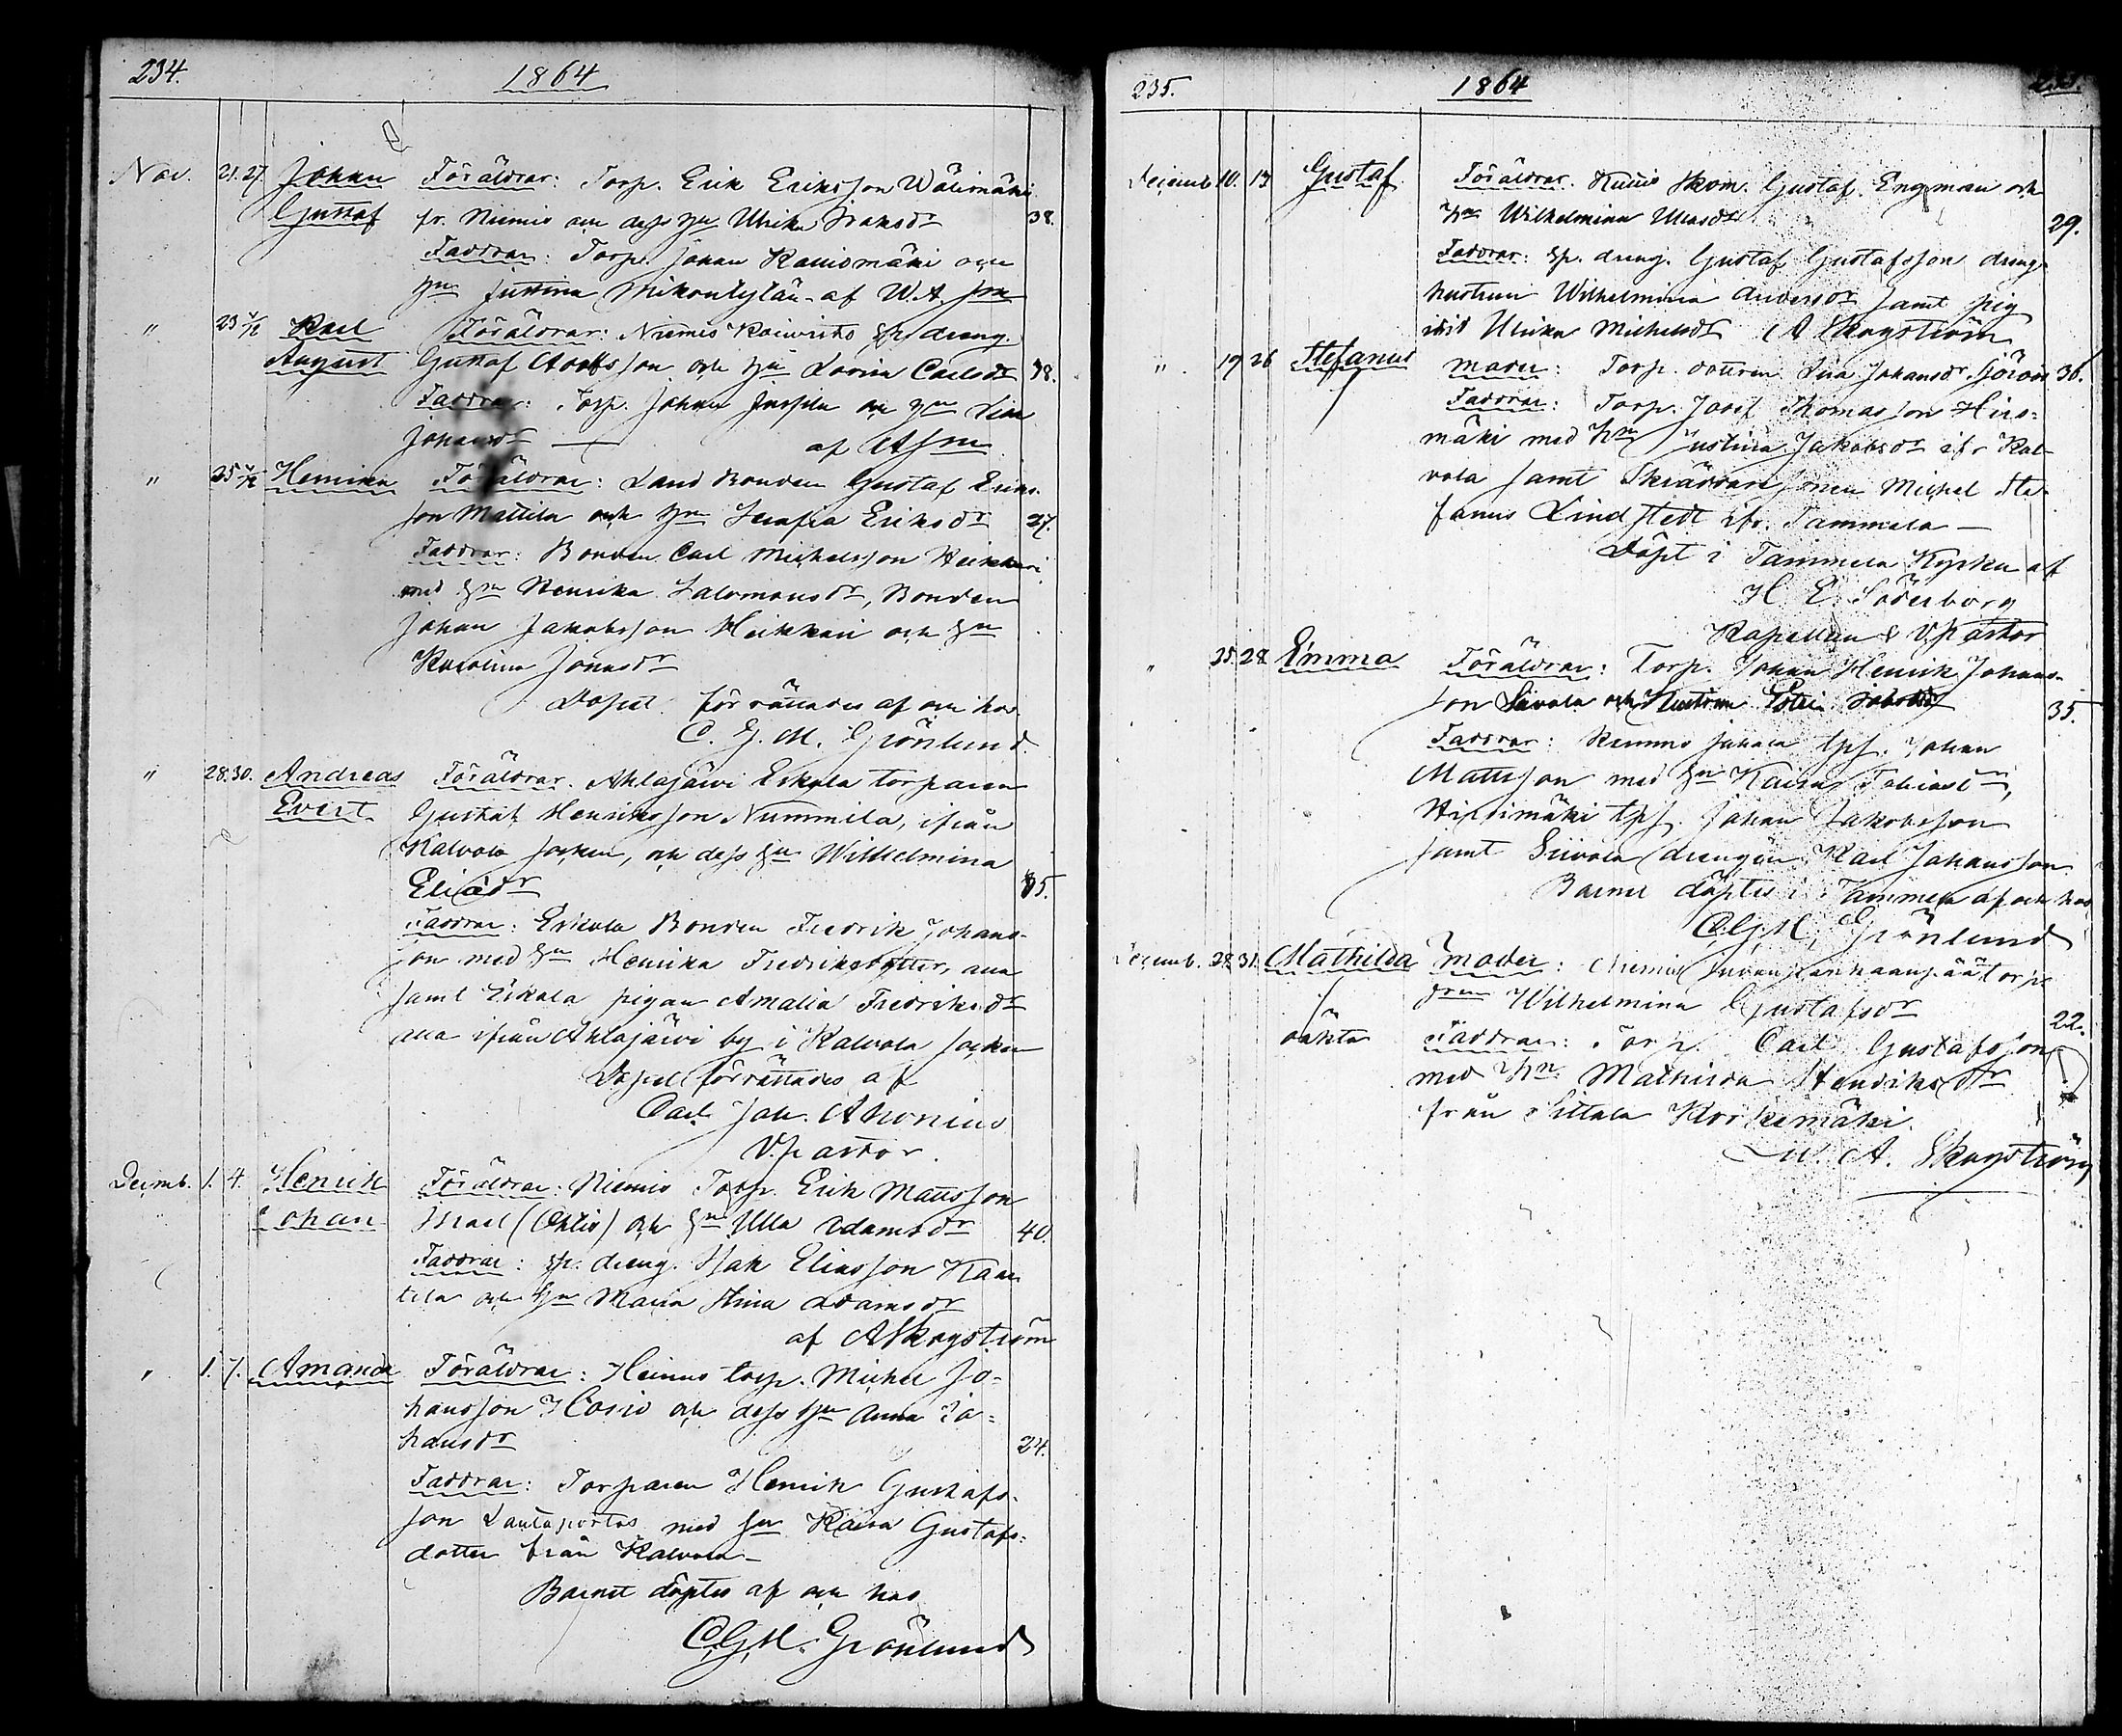 234. 1864
Nov. 21. 27. Johan Föräldrar: Torp. Erik Eriksson Wäärimäki
Gustaf fr. Niemis och dess hu Ulrika Isaksdr 38.
Faddrar: Torp. Johan Rauiomäki och
hu Justina Mikontylän af W.A. Sm
" 23 4/12 Karl Föräldrar: Niemis Koivisto sp. dreng.
August Gustaf Adolfsson och hu Lovisa Carlsdr 38.
Faddrar: Torp. Johan och hu Lisa
Johansdr — af ASm
" 25 4/12 Hemina Föräldrar: Land Bonden Gustaf Eriks-
son Mattila och hu Serafia Eriksdr 27.
Faddrar: Bonden Carl Michelsson Heikkari
med hu Henrika Salomonsdr, Bonden
Johan Jakobsson Heikkari och hu
Karolina Jonasdr
Dopet förrättades af och hos
C. G. M. Grönlund
" 28. 30. Andreas Föräldrar. Ahlajärvi Eskola torparen
Evert Gustaf Henriksson Nummila, ifrån
Kalvola socken, och dess hu Wilhelmina
Eliædr 35.
Faddrar: Eskola Bonden Fredrik Johans-
son med hu Henrika Fredriksdotter, 
samt Eskola pigan Amalia Fredriksdr
alla ifrån Ahlajärvi by i Kalvola socken
Dopet förrättades af
Carl Joh. Ahonius
V.pastor.
Decemb. 1. 4. Henrik Föräldrar: Niemis Torp. Erik Mattsson
Johan Israel (Ohlis) och hu Ulla Adamsdr 40.
Faddrar: sp. dreng. Isak Eliasson Kan
tila och hu Maria Stina Adamsdr
af ASkogström
" 1. 7. Amanda Föräldrar: Heinus torp. Michel Jo-
hansson Hosio och dess hu Anna Jo-
hansdr 24.
Faddrar: Torparen Henrik Gustafs-
son Lautaportas med hu Kaisa Gustafs-
dotter från Kalvola —
Barnet döptes af och hos
C.G.M. Grönlund
235. 1864
Decemb. 10. 13 Gustaf Föräldrar. Skom. Gustaf Engman och
hu Wilhelmina 29.
Faddrar: sp. dreng. Gustaf Gustafsson dreng-
hustrun Wilhelmina Andersdr samt pig
ibid Ulrika Michelsdr ASkogström
" 19 26 Stefanus Moder: Torp. dottren Lisa Johansdr 36.
Faddrar: Torp. Josef Thomasson Hirs-
mäki med hu Justina Jakobsdr ifr Kal-
vola samt Skräddare sonen Michel Ste-
fanus Lindstedt ifr. Tammela —
Döpt i Tammela Kyrka af
H. E. Söderborg
Kapellan & V.Pastor
" 25. 28 Emma Föräldrar: Torp. Johan Henrik Johans-
son Siivola och Hustrun 35.
Faddrar: tps. Johan
Mattsson med hu Kaisa Tobiasdr,
Hirsimäki tps. Johan Jakobsson
samt Siivola drengen Karl Johansson
Barnet döptes i Tammela af och hos
C.G.M. Grönlund
Decemb. 28 31. Mathilda Moder: Niemis
Wilhelmina Gustafsdr 22.
oäkta Faddrar: Torp. Carl Gustafsson
med hu Mathilda Hendriksdr
från Sittala Korkemäki.
W. A. Skogström